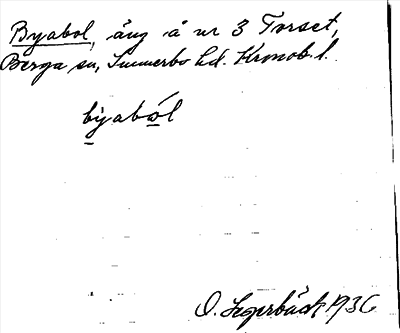 Byabol, äng å nr 3 Torset,
Berga sn, Sunnerbo hd. Kronob. l.
býabòl
O. Segerbäck 1936